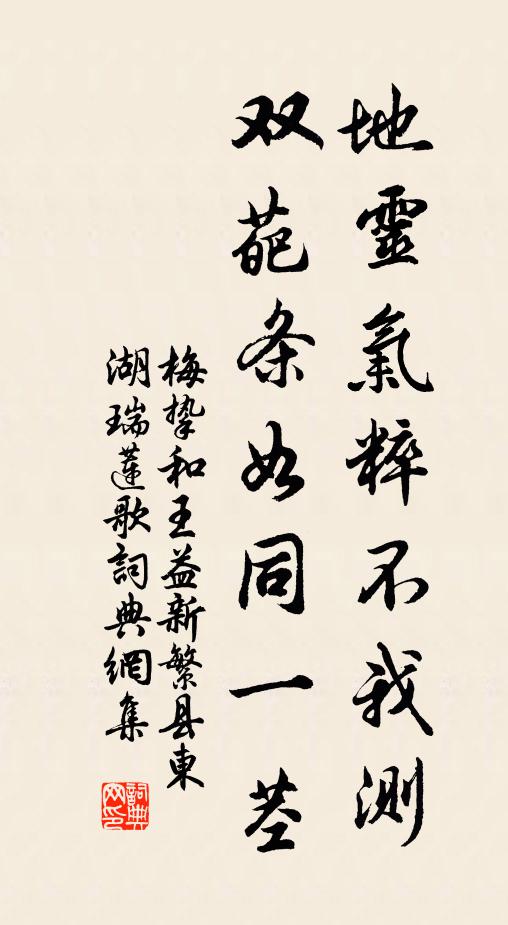 地靈氣粹不我測
双葩条如同一茎
梅挚和王益新繁县東
湖瑞蓮歌詞典網集
詞典网印